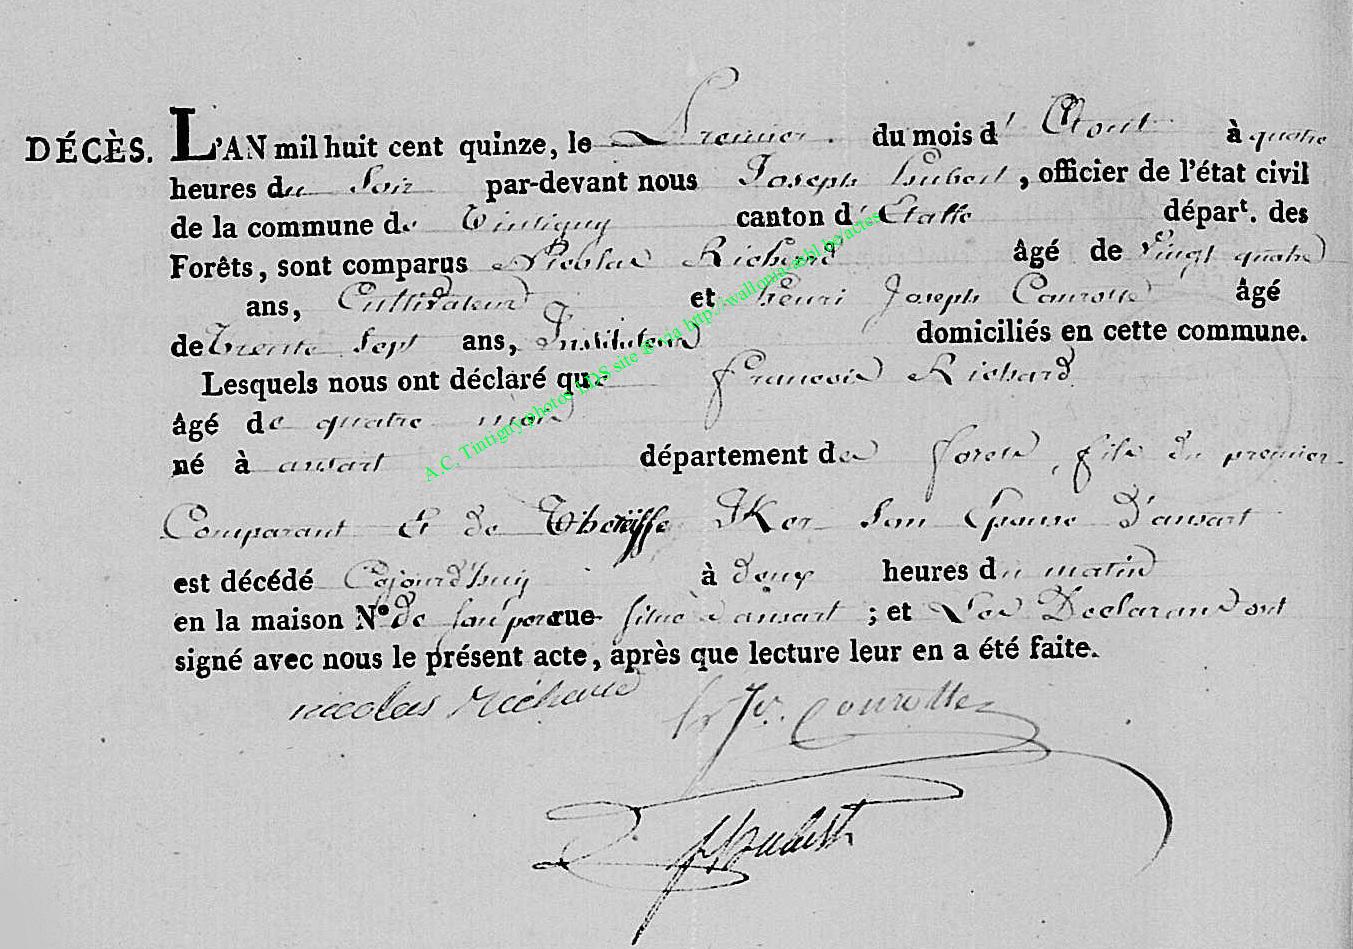 DÉCÈS. L'AN mil huit cent quinze, le Premier du mois d' Aout à quatre
heures du Soir par-devant nous Joseph hubert, officier de l'état civil
de la commune de Tintigny canton d' Etalle départ. des
Forêts, sont comparus Nicolas Richard âgé de vingt quatre
ans, Cultivateur et henri Joseph Courotte âgé
de Trente Sept ans, Instituteur domiciliés en cette commune.
Lesquels nous ont déclaré que francois Richard
âgé de quatre mois
né à ansart département des forets, fils du premier
Comparant Et de Son Epouse D'ansart
est décédé Cejourd'huy à deux heures du matin
en la maison N° de son pere rue situé d'ansart ; et Les Declarans ont
signé avec nous le présent acte, après que lecture leur en a été faite.
nicolas Richard h Jh. Courotte
Hubert
A.C. Tintigny photos LDS site via http://wallonia-asbl.be/actes